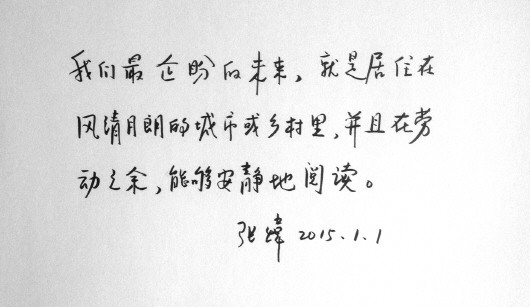 我们最企盼的未来，就是居住在
风清月朗的城市或乡村里，并且在劳
动之余，能够安静地阅读。
张炜 2015.1.1